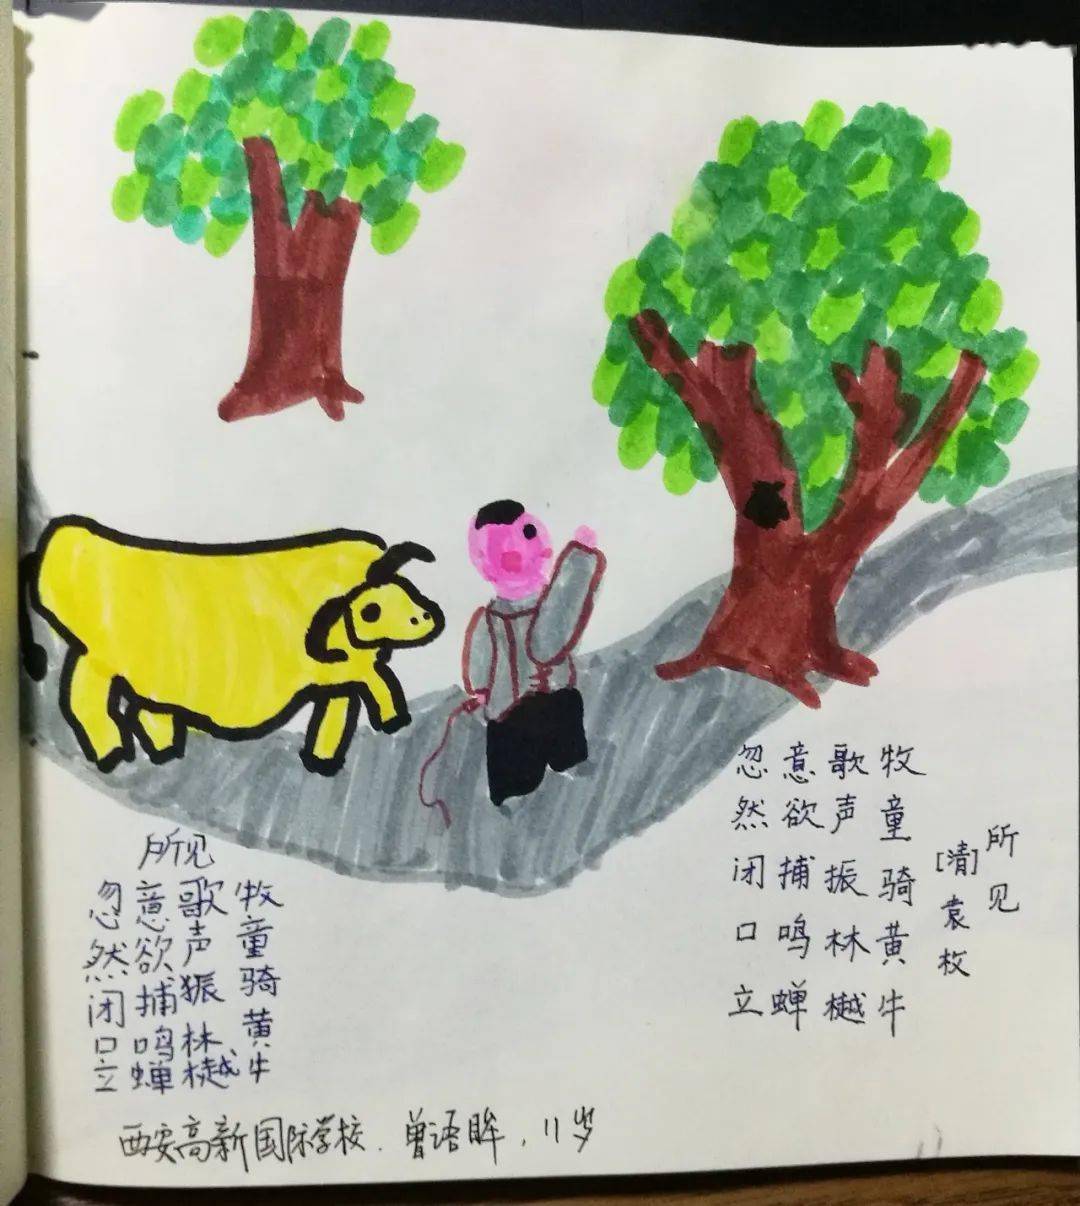 所见
[清]袁枚
牧童骑黄牛
歌声振林樾
意欲捕鸣蝉
忽然闭口立
所见
牧童骑黄牛
歌声振林樾
意欲捕鸣蝉
忽然闭口立
西安高新国际学校.曾语眸,11岁